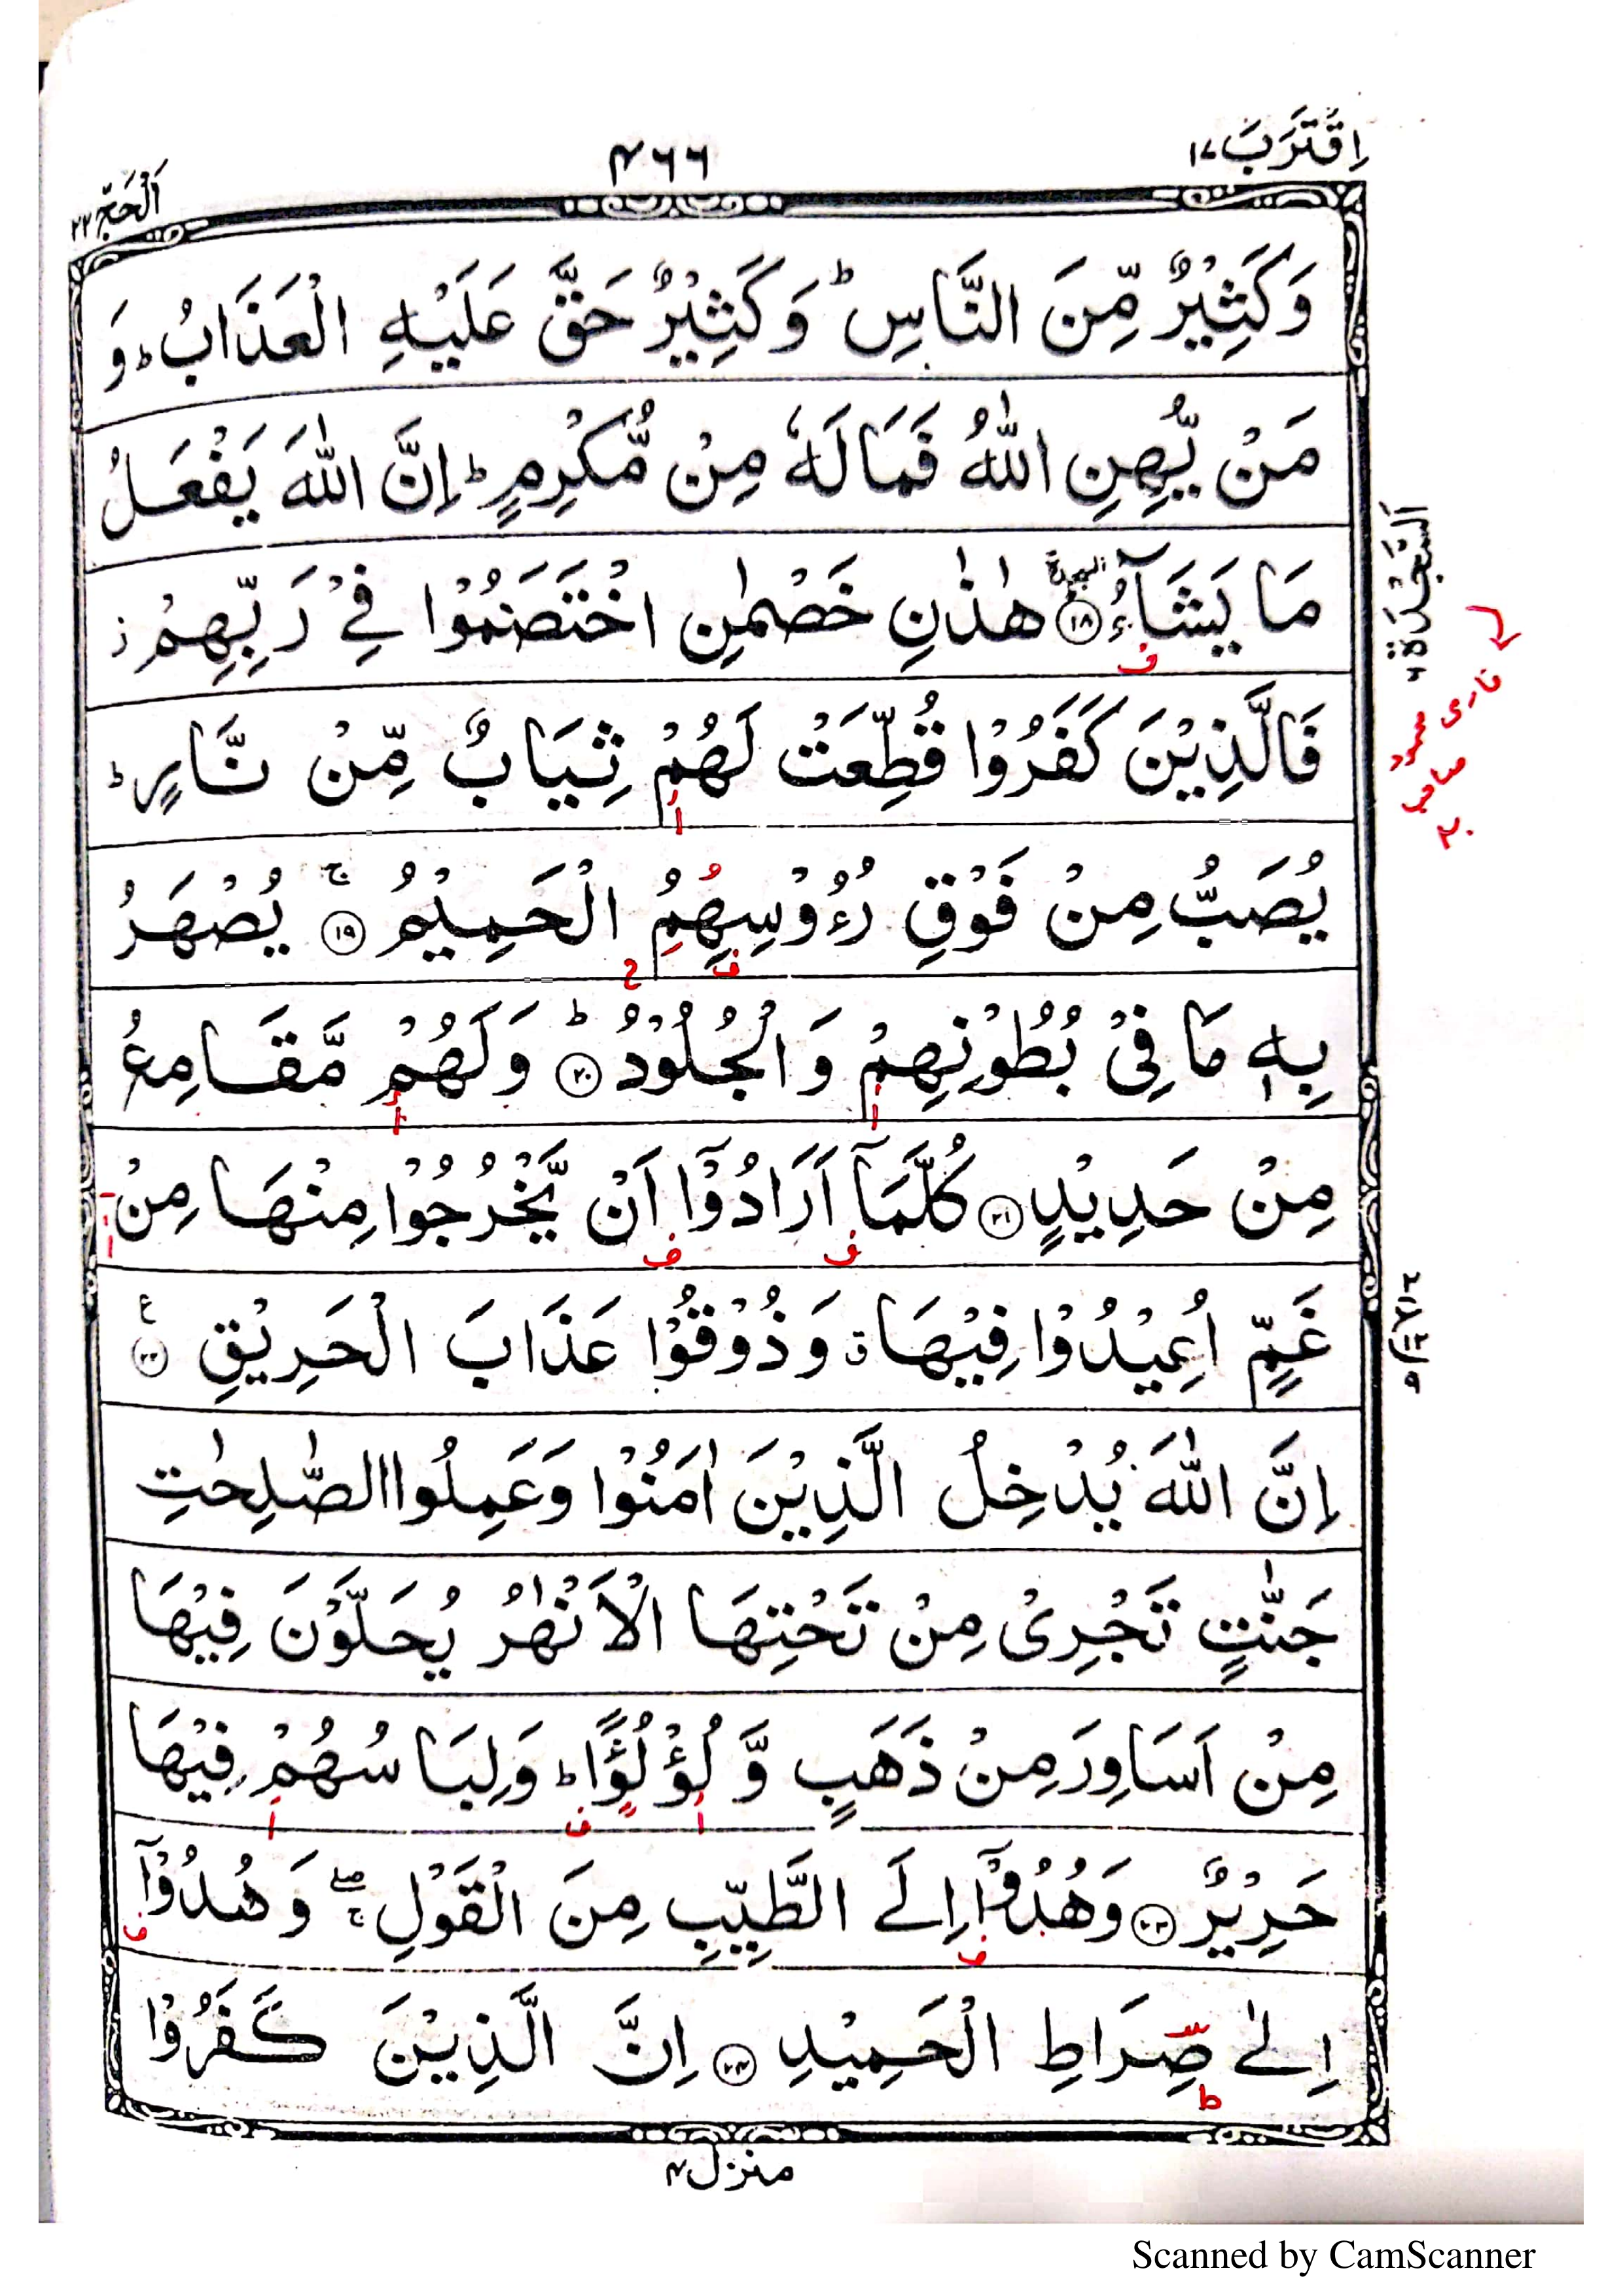 اِقْتَرَبَ ١٧
٤٦٦
اَلْحَجّ ٢٢
وَكَثِيْرٌ مِّنَ النَّاسِ ؕ وَكَثِيْرٌ حَقَّ عَلَيْهِ الْعَذَابُ ؕ وَ
مَنْ يُّهِنِ اللّٰهُ فَمَا لَهٗ مِنْ مُّكْرِمٍ ؕ اِنَّ اللّٰهَ يَفْعَلُ
مَا يَشَآءُ ۩ ﴿١٨﴾ هٰذٰنِ خَصْمٰنِ اخْتَصَمُوْا فِيْ رَبِّهِمْ ز
فَالَّذِيْنَ كَفَرُوْا قُطِّعَتْ لَهُمْ ثِيَابٌ مِّنْ نَّارٍ ؕ
يُصَبُّ مِنْ فَوْقِ رُءُوْسِهِمُ الْحَمِيْمُ ۚ ﴿١٩﴾ يُصْهَرُ
بِهٖ مَا فِيْ بُطُوْنِهِمْ وَالْجُلُوْدُ ؕ ﴿٢٠﴾ وَلَهُمْ مَّقَامِعُ
مِنْ حَدِيْدٍ ﴿٢١﴾ كُلَّمَآ اَرَادُوْٓا اَنْ يَّخْرُجُوْا مِنْهَا مِنْ
غَمٍّ اُعِيْدُوْا فِيْهَا ۃ وَذُوْقُوْا عَذَابَ الْحَرِيْقِ ﴿٢٢﴾ ع
اِنَّ اللّٰهَ يُدْخِلُ الَّذِيْنَ اٰمَنُوْا وَعَمِلُوا الصّٰلِحٰتِ
جَنّٰتٍ تَجْرِيْ مِنْ تَحْتِهَا الْاَنْهٰرُ يُحَلَّوْنَ فِيْهَا
مِنْ اَسَاوِرَ مِنْ ذَهَبٍ وَّ لُؤْلُؤًا ؕ وَلِبَاسُهُمْ فِيْهَا
حَرِيْرٌ ﴿٢٣﴾ وَهُدُوْٓا اِلَى الطَّيِّبِ مِنَ الْقَوْلِ ۖۚ وَهُدُوْٓا
اِلٰى صِرَاطِ الْحَمِيْدِ ﴿٢٤﴾ اِنَّ الَّذِيْنَ كَفَرُوْا
اَلسَّجْدَة ٦
منزل ٤
Scanned by CamScanner